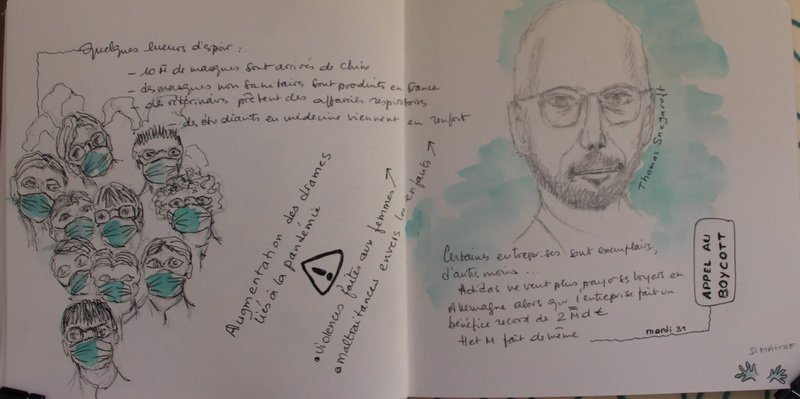 Quelques lueurs d'espoir :
- 10 M de masques sont arrivés de Chine
- des masques non sanitaires sont produits en france
- des vétérinaires prêtent des appareils respiratoires
- des étudiants en médecine viennent en renfort
Augmentation des drames
liés à la pandémie
• violences faites aux femmes
• maltraitances envers les enfants
Thomas Snegaroff
Certaines entreprises sont exemplaires,
d'autres moins ...
Adidas ne veut plus payer ses loyers en
Allemagne alors que l'entreprise fait un
bénéfice record de 2 Md €
H et M fait de même
mardi 31
APPEL AU
BOYCOTT